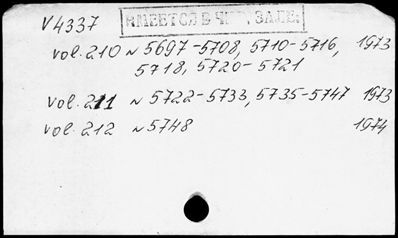 V4337
ИМЕЕТСЯ В ЧИТ. ЗАЛЕ.
vol. 210 N 5697-5708, 5710-5716, 1973
5718, 5720-5721
vol. 211 N 5722-5733, 5735-5747 1973
vol. 212 N 5748 1974